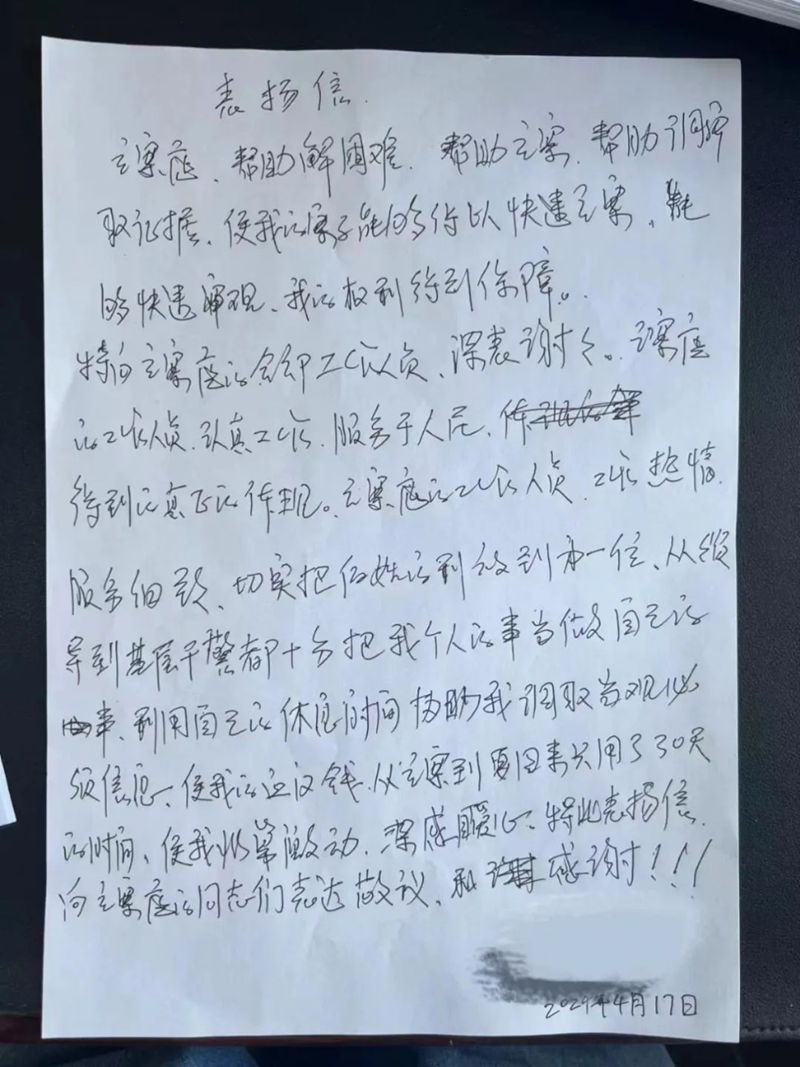 表扬信.
立案庭、帮助解困难、帮助立案、帮助调解
取证据、使我的案子能够得以快速立案、能
够快速审理、我的权利得到保障。
特向立案庭的全部工作人员、深表谢々。立案庭
的工作人员、认真工作、服务于人民、体
得到的真正的体现。立案庭的工作人员、工作热情
服务细致、切实把百姓的利放到第一位、从领
导到基层干警都十分把我个人的事当做自己的
事、利用自己的休息时间协助我调取当
须信息、使我的这汉钱、从立案到要回来只用了30天
的时间、使我非常激动、深感暖心、特此表扬信、
向立案庭的同志们表达敬议、和感谢！！！
4月17日